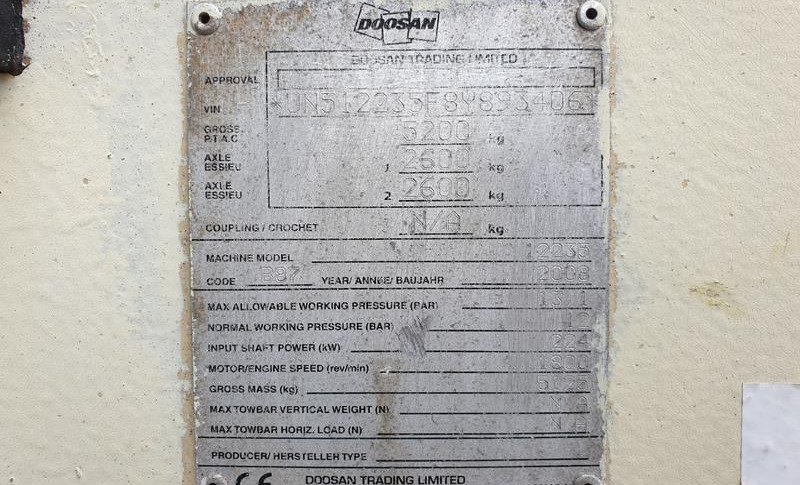 DOOSAN
DOOSAN TRADING LIMITED
APPROVAL
VIN *UN512235F8Y893406*
GROSS 5200 kg
P.T.A.C
AXLE 1 2600 kg
ESSIEU
AXLE 2 2600 kg
ESSIEU
COUPLING / CROCHET N/A kg
MACHINE MODEL 12235
CODE B87 YEAR/ ANNEE/ BAUJAHR 2008
MAX ALLOWABLE WORKING PRESSURE (BAR)
NORMAL WORKING PRESSURE (BAR) 12
INPUT SHAFT POWER (kW) 224
MOTOR/ENGINE SPEED (rev/min) 1800
GROSS MASS (kg)
MAX TOWBAR VERTICAL WEIGHT (N) N/A
MAX TOWBAR HORIZ. LOAD (N) N/A
PRODUCER/ HERSTELLER TYPE
CE DOOSAN TRADING LIMITED